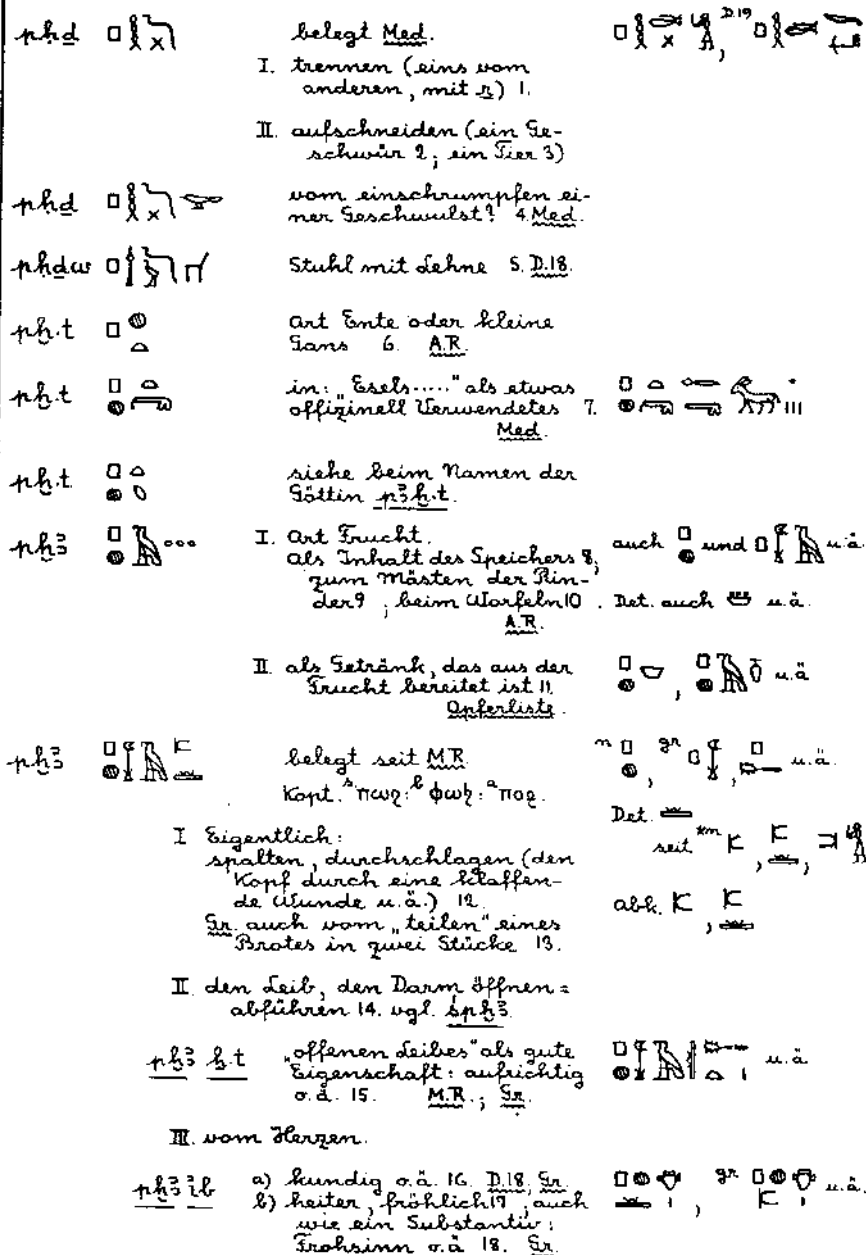 pḥḏ belegt Med. , D.19
I. trennen (eins vom
anderen, mit r) 1.
II. aufschneiden (ein Ge-
schwür 2; ein Tier 3)
pḥḏ vom einschrumpfen ei-
ner Geschwulst? 4. Med.
pḥḏw Stuhl mit Lehne 5. D.18.
pḫ.t Art Ente oder kleine
Gans 6. A.R.
pḫ.t in: „Esels....." als etwas
offizinell Verwendetes 7.
Med.
pḫ.t siehe beim Namen der
Göttin pꜣḫ.t.
pḫꜣ I. Art Frucht. auch und u.ä.
als Inhalt des Speichers 8;
zum Mästen der Rin-
der 9; beim Worfeln 10. Det. auch u.ä.
A.R.
II. als Getränk, das aus der
Frucht bereitet ist 11. , u.ä
Opferliste.
pḫꜣ belegt seit M.R. , gr , u.ä.
Kopt. s πωϩ: b ϕωϧ: a ποϩ.
Det.
I Eigentlich: seit
spalten, durchschlagen (den
Kopf durch eine klaffen-
de Wunde u.ä.) 12. abk. ,
Gr. auch vom „teilen" eines
Brotes in zwei Stücke 13.
II. den Leib, den Darm öffnen =
abführen 14. vgl. śpḫꜣ.
pḫꜣ ẖ.t „offenen Leibes" als gute
Eigenschaft: aufrichtig u.ä
o.ä. 15. M.R.; Gr.
III. vom Herzen.
pḫꜣ ib a) kundig o.ä. 16. D.18, Gr. , gr u.ä.
b) heiter, fröhlich 17, auch
wie ein Substantiv:
Frohsinn o.ä 18. Gr.